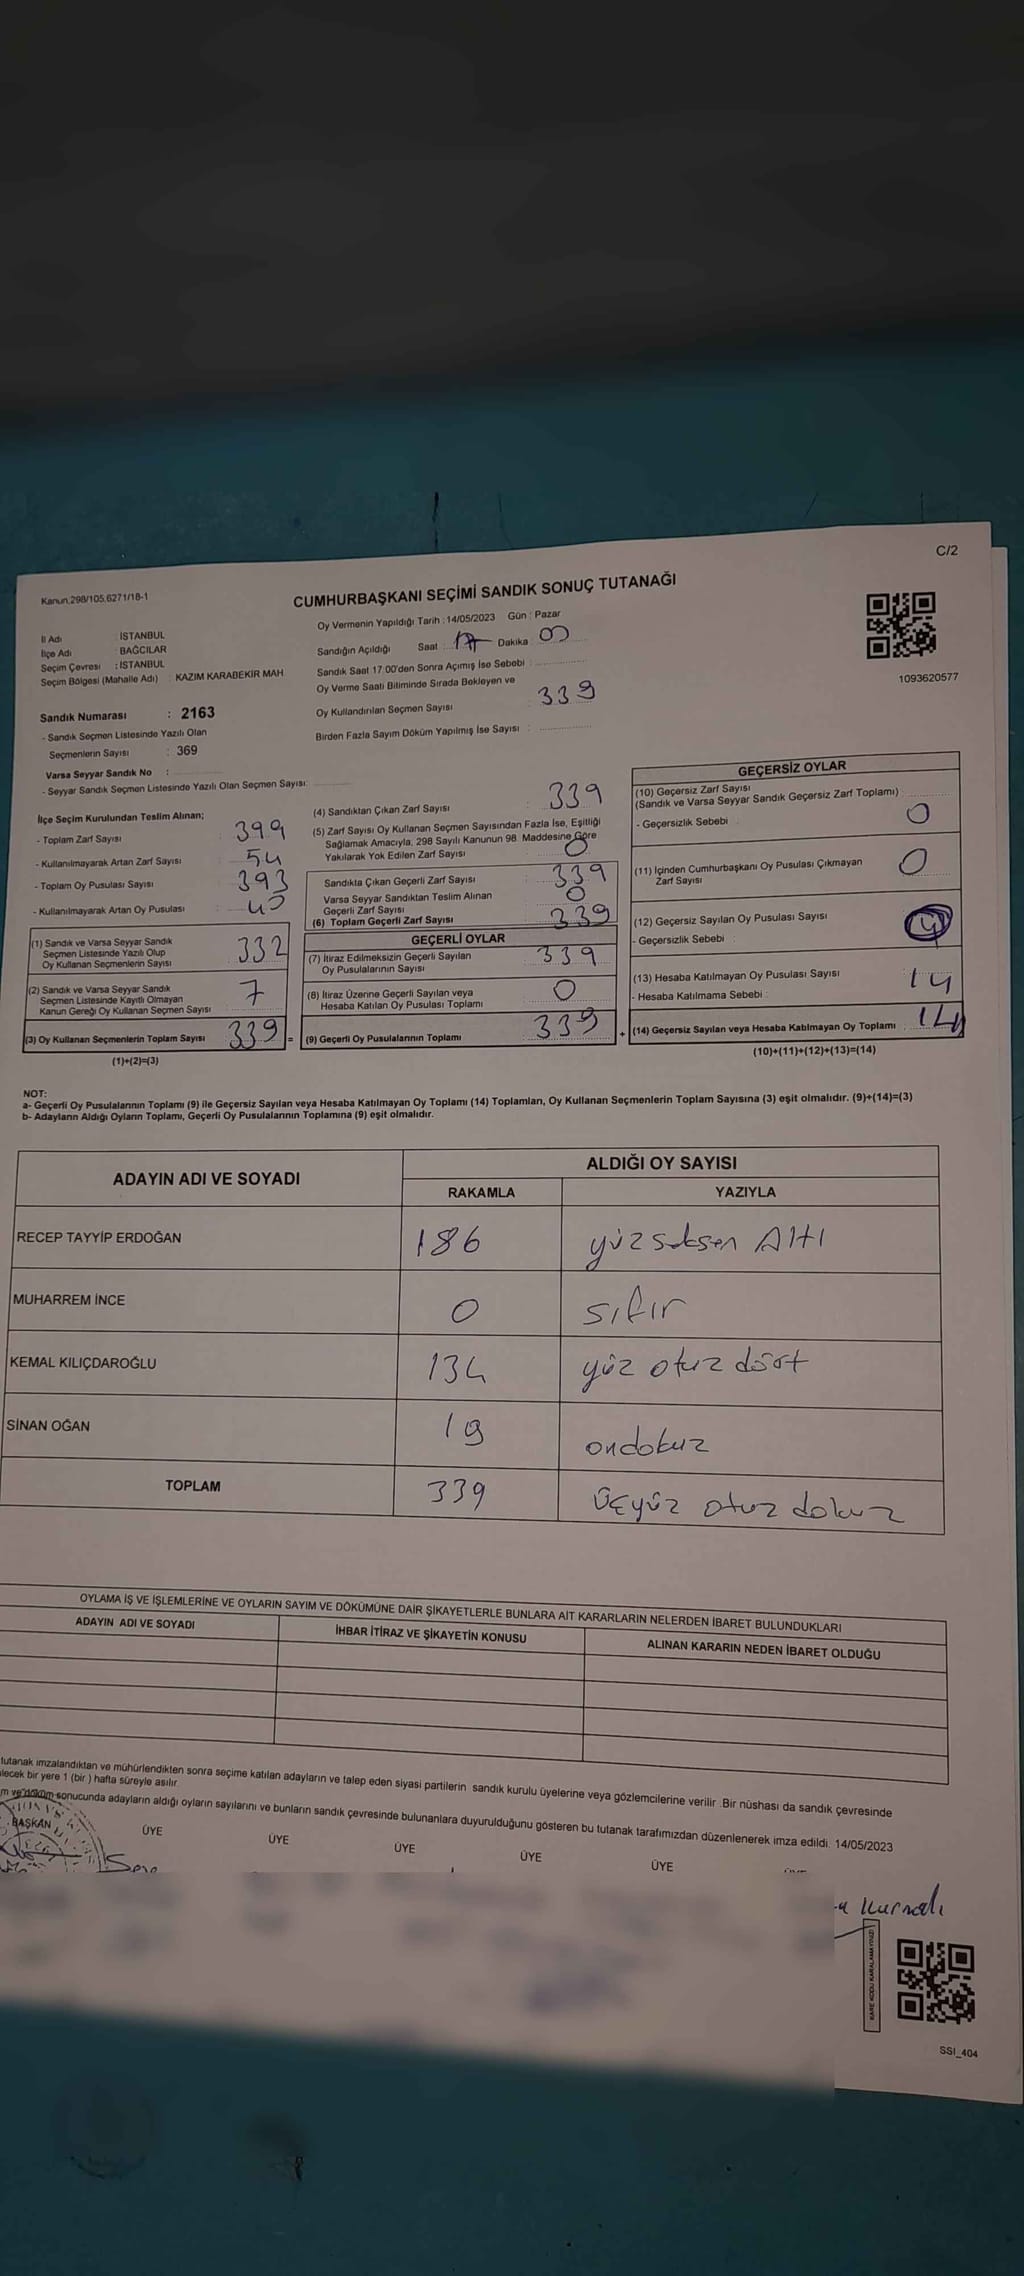 C/2
Kanun,298/105,6271/18-1
CUMHURBAŞKANI SEÇİMİ SANDIK SONUÇ TUTANAĞI
İl Adı : İSTANBUL
İlçe Adı : BAĞCILAR
Seçim Çevresi : İSTANBUL
Seçim Bölgesi (Mahalle Adı) : KAZIM KARABEKİR MAH
Sandık Numarası : 2163
- Sandık Seçmen Listesinde Yazılı Olan
Seçmenlerin Sayısı : 369
Varsa Seyyar Sandık No :
- Seyyar Sandık Seçmen Listesinde Yazılı Olan Seçmen Sayısı:
Oy Vermenin Yapıldığı Tarih : 14/05/2023 Gün : Pazar
Sandığın Açıldığı Saat 17 Dakika 00
Sandık Saat 17:00'den Sonra Açımış İse Sebebi :
Oy Verme Saati Bitiminde Sırada Bekleyen ve
Oy Kullandırılan Seçmen Sayısı : 339
Birden Fazla Sayım Döküm Yapılmış İse Sayısı :
1093620577
İlçe Seçim Kurulundan Teslim Alınan;
- Toplam Zarf Sayısı : 399
- Kullanılmayarak Artan Zarf Sayısı : 54
- Toplam Oy Pusulası Sayısı : 393
- Kullanılmayarak Artan Oy Pusulası : 40
(1) Sandık ve Varsa Seyyar Sandık
Seçmen Listesinde Yazılı Olup
Oy Kullanan Seçmenlerin Sayısı 332
(2) Sandık ve Varsa Seyyar Sandık
Seçmen Listesinde Kayıtlı Olmayan
Kanun Gereği Oy Kullanan Seçmen Sayısı 7
(3) Oy Kullanan Seçmenlerin Toplam Sayısı 339 =
(1)+(2)=(3)
(4) Sandıktan Çıkan Zarf Sayısı : 339
(5) Zarf Sayısı Oy Kullanan Seçmen Sayısından Fazla İse, Eşitliği
Sağlamak Amacıyla, 298 Sayılı Kanunun 98. Maddesine Göre
Yakılarak Yok Edilen Zarf Sayısı 0
Sandıkta Çıkan Geçerli Zarf Sayısı 339
Varsa Seyyar Sandıktan Teslim Alınan
Geçerli Zarf Sayısı 0
(6) Toplam Geçerli Zarf Sayısı 339
GEÇERLİ OYLAR
(7) İtiraz Edilmeksizin Geçerli Sayılan
Oy Pusulalarının Sayısı 339
(8) İtiraz Üzerine Geçerli Sayılan veya
Hesaba Katılan Oy Pusulası Toplamı 0
(9) Geçerli Oy Pusulalarının Toplamı 339 +
GEÇERSİZ OYLAR
(10) Geçersiz Zarf Sayısı
(Sandık ve Varsa Seyyar Sandık Geçersiz Zarf Toplamı) :
- Geçersizlik Sebebi : 0
(11) İçinden Cumhurbaşkanı Oy Pusulası Çıkmayan
Zarf Sayısı 0
(12) Geçersiz Sayılan Oy Pusulası Sayısı
- Geçersizlik Sebebi :
(13) Hesaba Katılmayan Oy Pusulası Sayısı 14
- Hesaba Katılmama Sebebi :
(14) Geçersiz Sayılan veya Hesaba Katılmayan Oy Toplamı : 14
(10)+(11)+(12)+(13)=(14)
NOT:
a- Geçerli Oy Pusulalarının Toplamı (9) ile Geçersiz Sayılan veya Hesaba Katılmayan Oy Toplamı (14) Toplamları, Oy Kullanan Seçmenlerin Toplam Sayısına (3) eşit olmalıdır. (9)+(14)=(3)
b- Adayların Aldığı Oyların Toplamı, Geçerli Oy Pusulalarının Toplamına (9) eşit olmalıdır.
ADAYIN ADI VE SOYADI
ALDIĞI OY SAYISI
RAKAMLA YAZIYLA
RECEP TAYYİP ERDOĞAN 186 yüzseksen Altı
MUHARREM İNCE 0 sıfır
KEMAL KILIÇDAROĞLU 134 yüz otuz dört
SİNAN OĞAN 19 ondokuz
TOPLAM 339 üçyüz otuz dokuz
OYLAMA İŞ VE İŞLEMLERİNE VE OYLARIN SAYIM VE DÖKÜMÜNE DAİR ŞİKAYETLERLE BUNLARA AİT KARARLARIN NELERDEN İBARET BULUNDUKLARI
ADAYIN ADI VE SOYADI İHBAR İTİRAZ VE ŞİKAYETİN KONUSU ALINAN KARARIN NEDEN İBARET OLDUĞU
tutanak imzalandıktan ve mühürlendikten sonra seçime katılan adayların ve talep eden siyasi partilerin sandık kurulu üyelerine veya gözlemcilerine verilir. Bir nüshası da sandık çevresinde
bir yere 1 (bir) hafta süreyle asılır.
sonucunda adayların aldığı oyların sayılarını ve bunların sandık çevresinde bulunanlara duyurulduğunu gösteren bu tutanak tarafımızdan düzenlenerek imza edildi. 14/05/2023
BAŞKAN ÜYE ÜYE ÜYE ÜYE ÜYE
KARE KODU KARALAMAYINIZ!
SSI_404